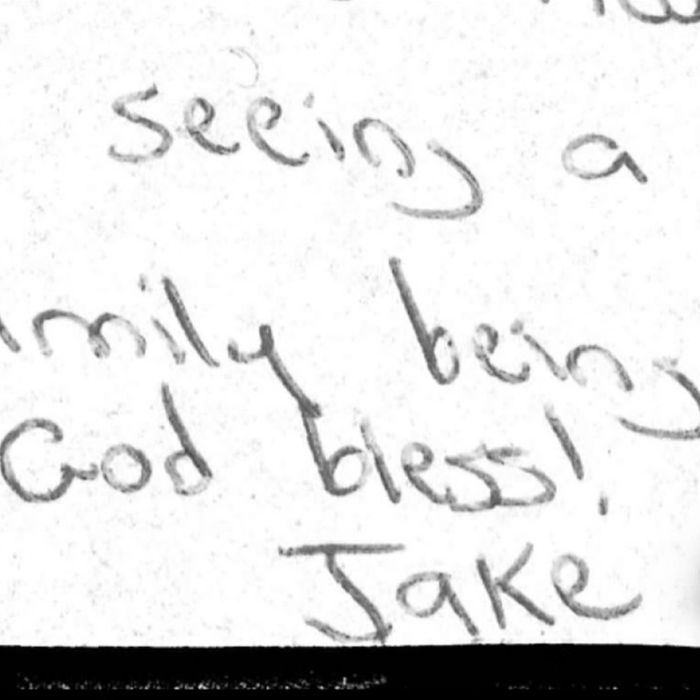 seeing a
mily being
God bless!
Jake